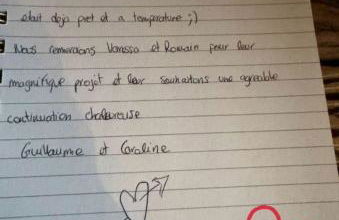 était déja pret et a temperature ;)
Nous remercions Vanessa et Romain pour leur
magnifique projet et leur souhaitons une agréable
continuation chaleureuse
Guillaume et Caroline